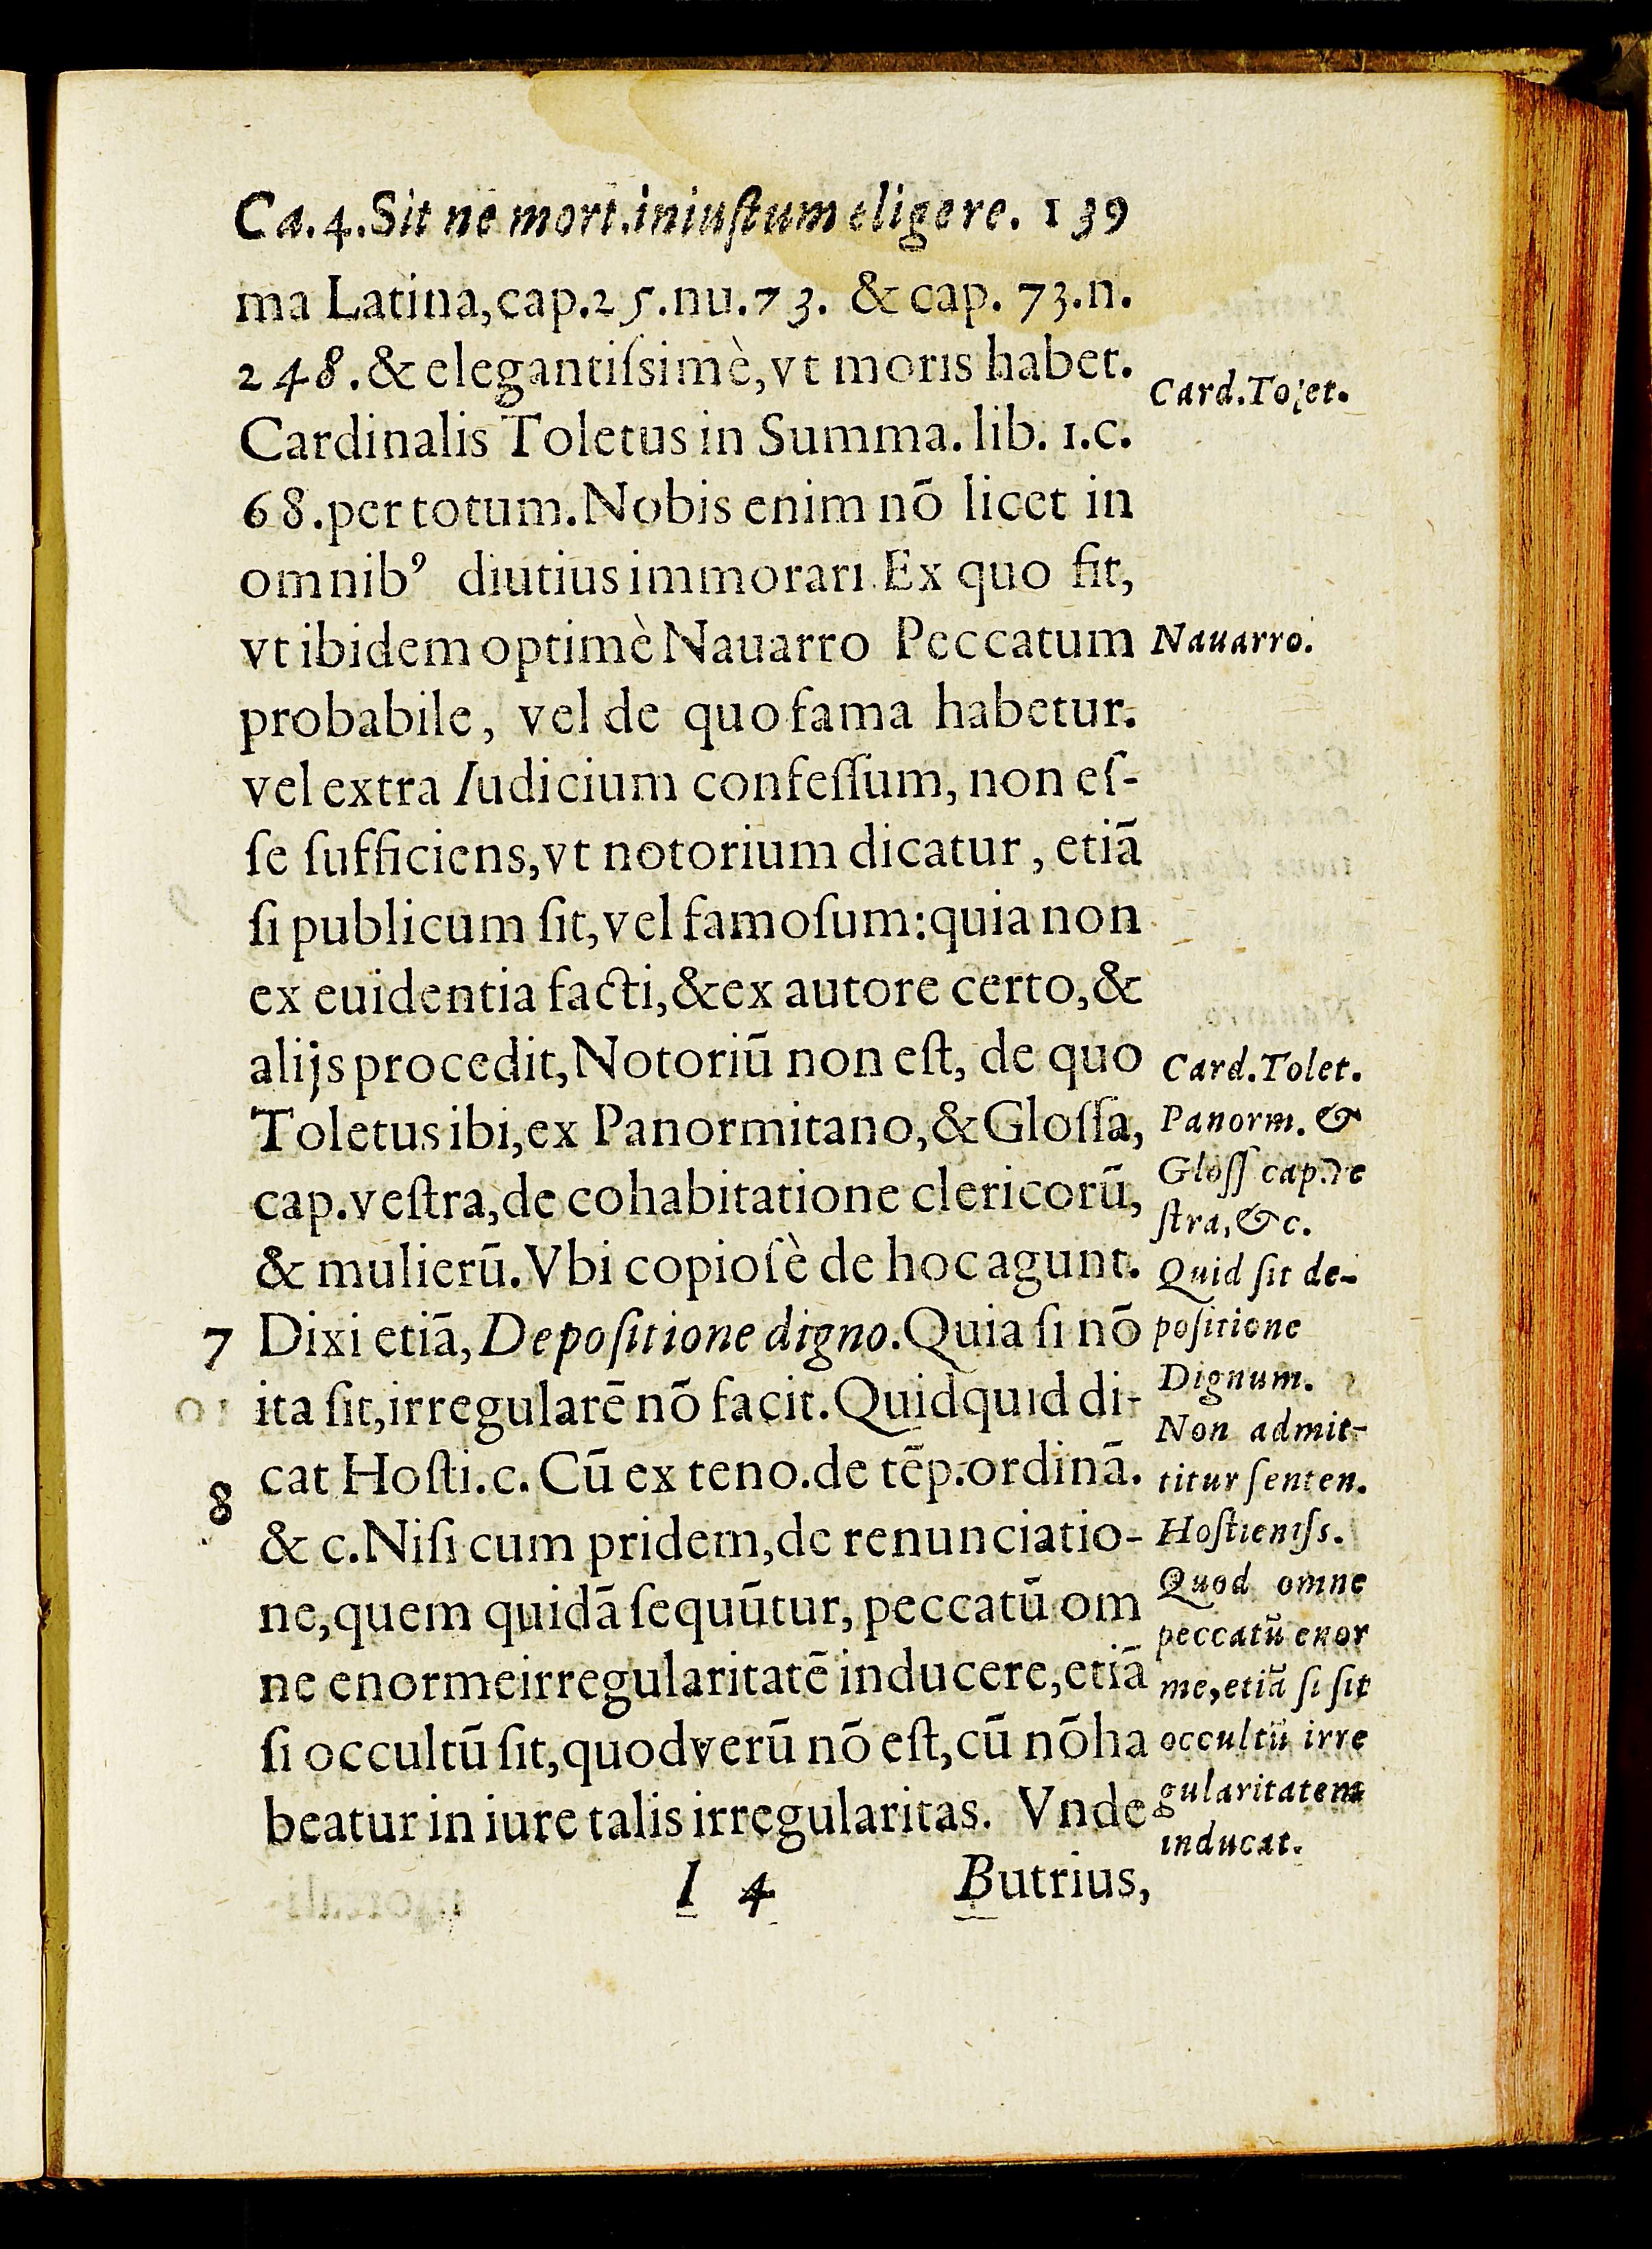 Ca.4.Sit ne mort.iniuſtum eligere. 139
ma Latina,cap.25.nu.73. & cap. 73.n.
248.& elegantiſsimè,vt moris habet.
Cardinalis Toletus in Summa. lib. 1.c.
68.per totum.Nobis enim nõ licet in
omnibꝰ diutius immorari.Ex quo fit,
vt ibidem optimè Nauarro Peccatum
probabile, vel de quo fama habetur.
vel extra Iudicium confeſſum, non eſ-
ſe ſufficiens,vt notorium dicatur, etiã
ſi publicum ſit,vel famoſum:quia non
ex euidentia facti,& ex autore certo,&
alijs procedit,Notoriũ non eſt, de quo
Toletus ibi,ex Panormitano,& Gloſſa,
cap.veſtra,de cohabitatione clericorũ,
& mulierũ.Vbi copioſè de hoc agunt.
7 Dixi etiã, Depoſitione digno.Quia ſi nõ
ita ſit,irregularẽ nõ facit.Quidquid di-
8 cat Hoſti.c. Cũ ex teno.de tẽp.ordinã.
& c.Niſi cum pridem,de renunciatio-
ne,quem quidã ſequũtur, peccatũ om
ne enorme irregularitatẽ inducere,etiã
ſi occultũ ſit,quod verũ nõ eſt,cũ nõ ha
beatur in iure talis irregularitas. Vnde
I 4 Butrius,
Card.Tolet.
Nauarro.
Card.Tolet.
Panorm. &
Gloſſ cap.ve
ſtra,&c.
Quid ſit de-
poſitione
Dignum.
Non admit-
titur ſenten.
Hoſtienſs.
Quod omne
peccatũ enor
me,etiã ſi ſit
occultũ irre
gularitatem
inducat.